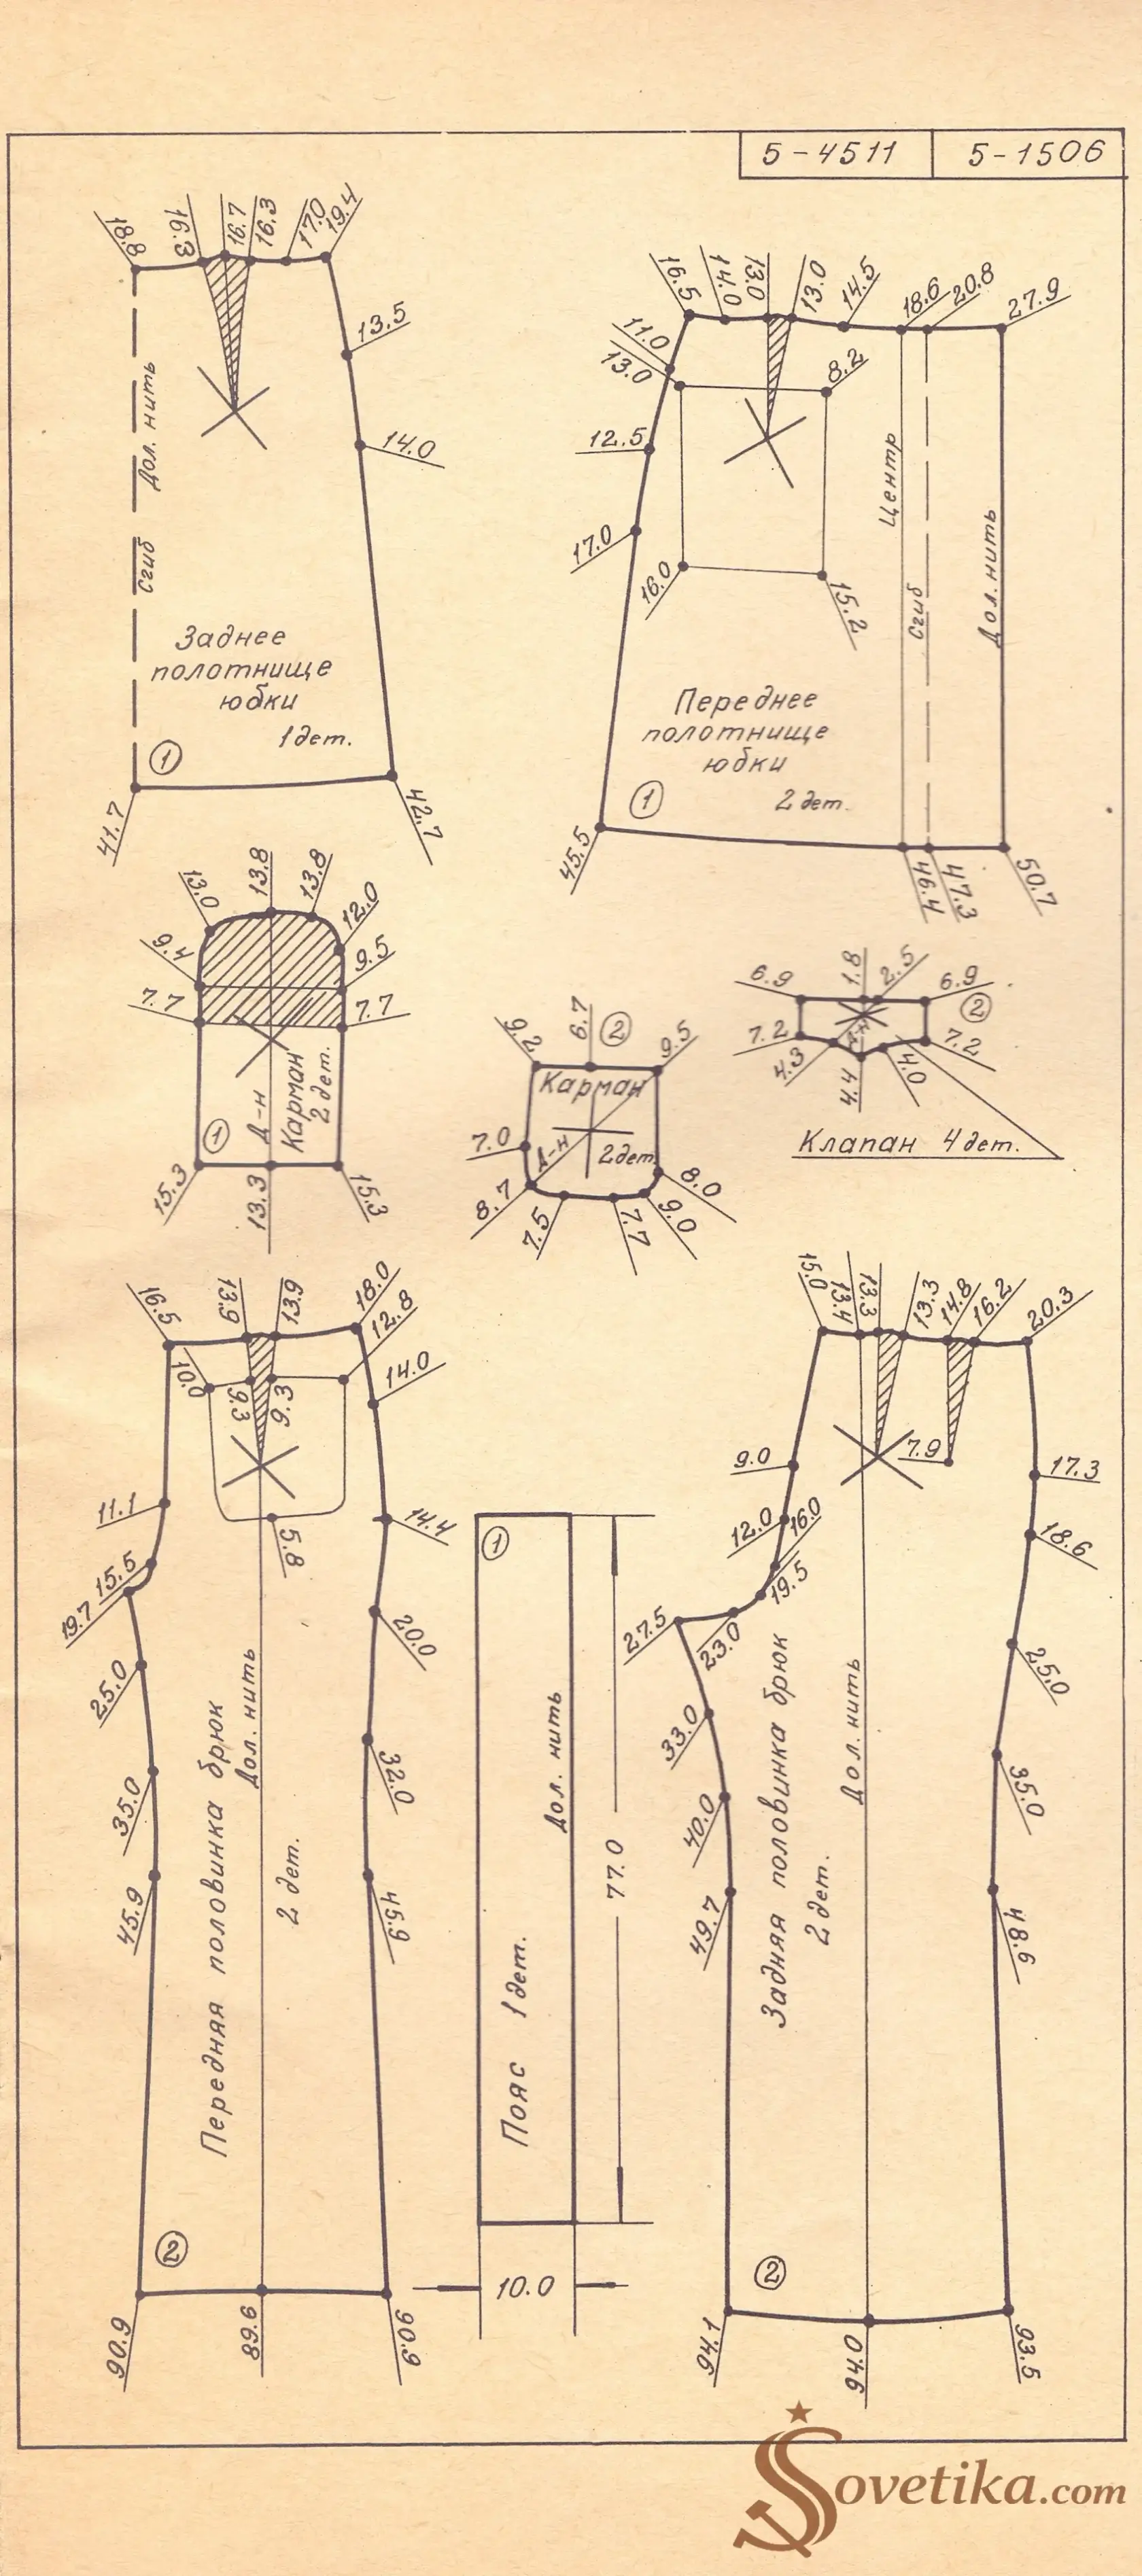 5-4511
5-1506
18.8
16.3
16.7
16.3
17.0
19.4
13.5
14.0
Дол. нить
сгиб
Заднее
полотнище
юбки
1 дет.
1
41.7
42.7
16.5
14.0
13.0
13.0
14.5
18.6
20.8
27.9
11.0
13.0
8.2
12.5
17.0
16.0
15.2
Центр
сгиб
Дол. нить
Переднее
полотнище
юбки
2 дет.
1
45.5
46.4
47.3
50.7
13.0
13.8
13.8
12.0
9.4
9.5
7.7
7.7
Д-н
Карман
2 дет.
1
15.3
13.3
15.3
9.2
6.7
2
9.5
Карман
7.0
Д-н
2 дет.
8.7
7.5
7.7
9.0
8.0
6.9
1.8
2.5
6.9
2
7.2
4.3
Д-н
4.4
4.0
7.2
Клапан 4 дет.
16.5
13.9
13.9
18.0
12.8
10.0
9.3
9.3
14.0
11.1
14.4
5.8
15.5
19.7
20.0
25.0
32.0
35.0
45.9
45.9
Передняя половинка брюк
Дол. нить
2 дет.
2
90.9
89.6
90.9
1
Дол. нить
Пояс 1 дет.
77.0
10.0
15.0
13.4
13.3
13.3
14.8
16.2
20.3
9.0
7.9
17.3
12.0
16.0
18.6
19.5
27.5
23.0
25.0
33.0
35.0
40.0
49.7
48.6
Задняя половинка брюк
2 дет.
Дол. нить
2
94.1
94.0
93.5
Sovetika.com